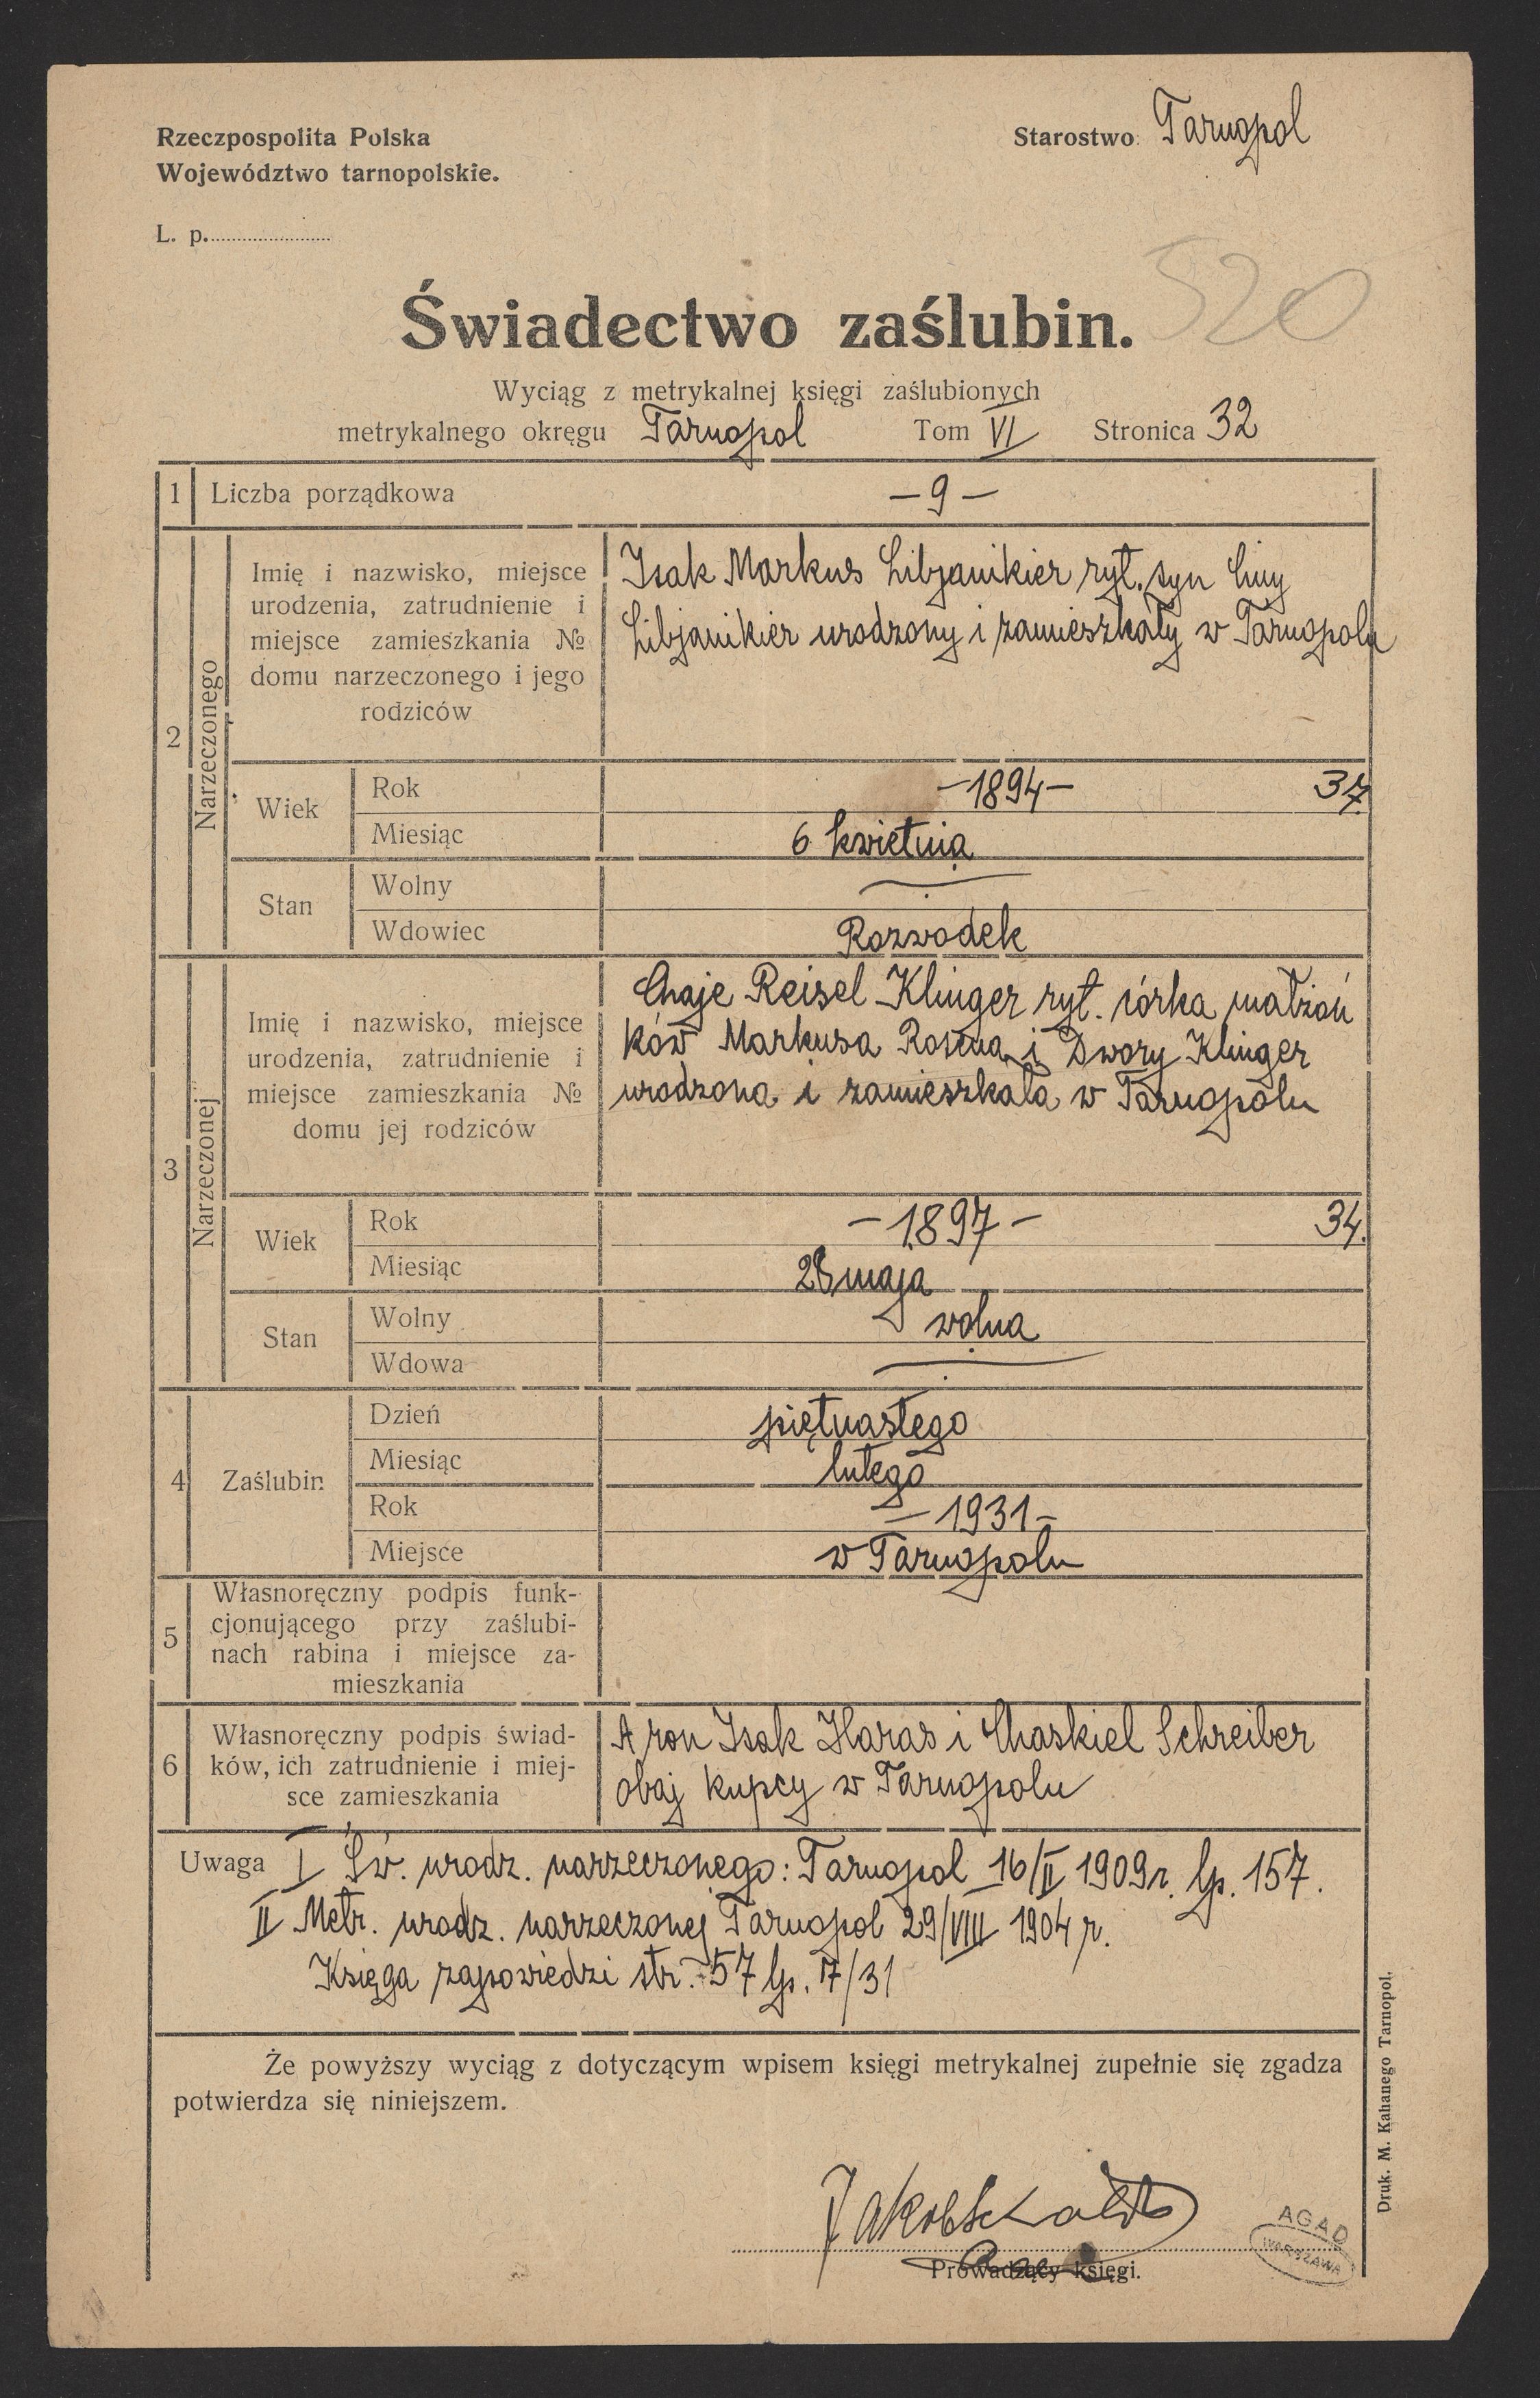 Rzeczpospolita Polska
Województwo tarnopolskie.
Starostwo Tarnopol
L. p.
520
Świadectwo zaślubin.
Wyciąg z metrykalnej księgi zaślubionych
metrykalnego okręgu Tarnopol Tom VI Stronica 32
1 Liczba porządkowa – 9 –
2 Narzeczonego
Imię i nazwisko, miejsce
urodzenia, zatrudnienie i
miejsce zamieszkania №
domu narzeczonego i jego
rodziców
Isak Markus Libjanikier ryt. syn Ciny
Libjanikier urodzony i zamieszkały w Tarnopolu
Wiek
Rok – 1894 – 37.
Miesiąc 6 kwietnia
Stan
Wolny
Wdowiec Rozwodek
3 Narzeczonej
Imię i nazwisko, miejsce
urodzenia, zatrudnienie i
miejsce zamieszkania №
domu jej rodziców
Chaje Reisel Klinger ryt. córka małżoń
ków Markusa Rosena i Dwory Klinger
urodzona i zamieszkała w Tarnopolu
Wiek
Rok – 1897 – 34.
Miesiąc 28 maja
Stan
Wolny wolna
Wdowa
4 Zaślubin
Dzień piętnastego
Miesiąc lutego
Rok – 1931 –
Miejsce w Tarnopolu
5 Własnoręczny podpis funk-
cjonującego przy zaślubi-
nach rabina i miejsce za-
mieszkania
6 Własnoręczny podpis świad-
ków, ich zatrudnienie i miej-
sce zamieszkania
Aron Isak Haras i Chaskiel Schreiber
obaj kupcy w Tarnopolu
Uwaga I Św. urodz. narzeczonego: Tarnopol 16/II 1909 r. lp. 157.
II Metr. urodz. narzeczonej Tarnopol 29/VIII 1904 r.
Księga zapowiedzi str. 57 lp. 17/31
Że powyższy wyciąg z dotyczącym wpisem księgi metrykalnej zupełnie się zgadza
potwierdza się niniejszem.
Prowadzący księgi.
AGAD
WARSZAWA
Druk. M. Kahanego Tarnopol.